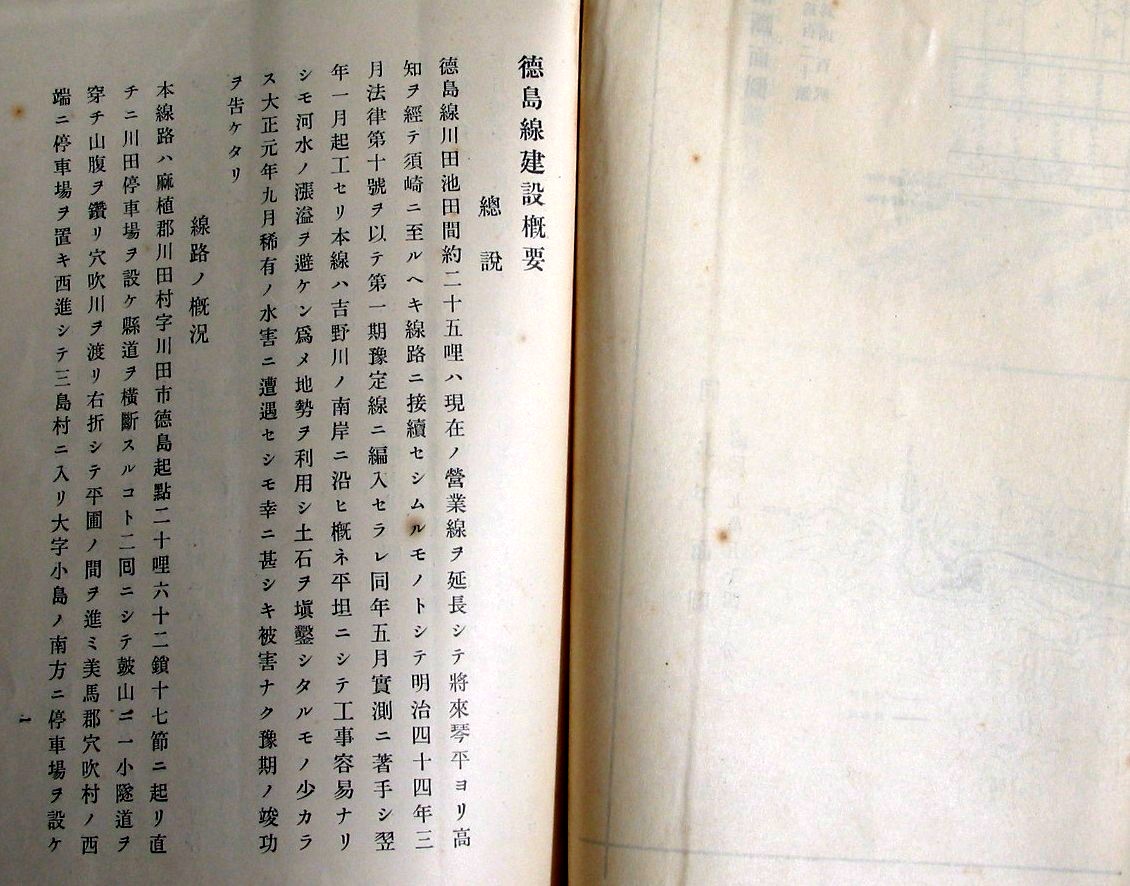 德島線建設槪要
總說
德島線川田池田間約二十五哩ハ現在ノ營業線ヲ延長シテ將來琴平ヨリ高
知ヲ經テ須崎ニ至ルヘキ線路ニ接續セシムルモノトシテ明治四十四年三
月法律第十號ヲ以テ第一期豫定線ニ編入セラレ同年五月實測ニ著手シ翌
年一月起工セリ本線ハ吉野川ノ南岸ニ沿ヒ槪ネ平坦ニシテ工事容易ナリ
シモ河水ノ漲溢ヲ避ケン爲メ地勢ヲ利用シ土石ヲ塡鑿シタルモノ少カラ
ス大正元年九月稀有ノ水害ニ遭遇セシモ幸ニ甚シキ被害ナク豫期ノ竣功
ヲ告ケタリ
線路ノ槪況
本線路ハ麻植郡川田村字川田市德島起點二十哩六十二鎖十七節ニ起リ直
チニ川田停車場ヲ設ケ縣道ヲ橫斷スルコト二回ニシテ皷山ニ一小隧道ヲ
穿チ山腹ヲ鑽リ穴吹川ヲ渡リ右折シテ平圃ノ間ヲ進ミ美馬郡穴吹村ノ西
端ニ停車場ヲ置キ西進シテ三島村ニ入リ大字小島ノ南方ニ停車場ヲ設ケ
1